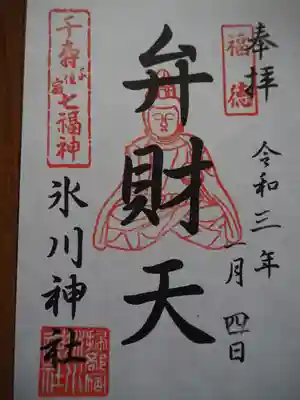 奉拝
福徳
令和三年
一月四日
弁財天
千寿七福神
千住宿
氷川神社